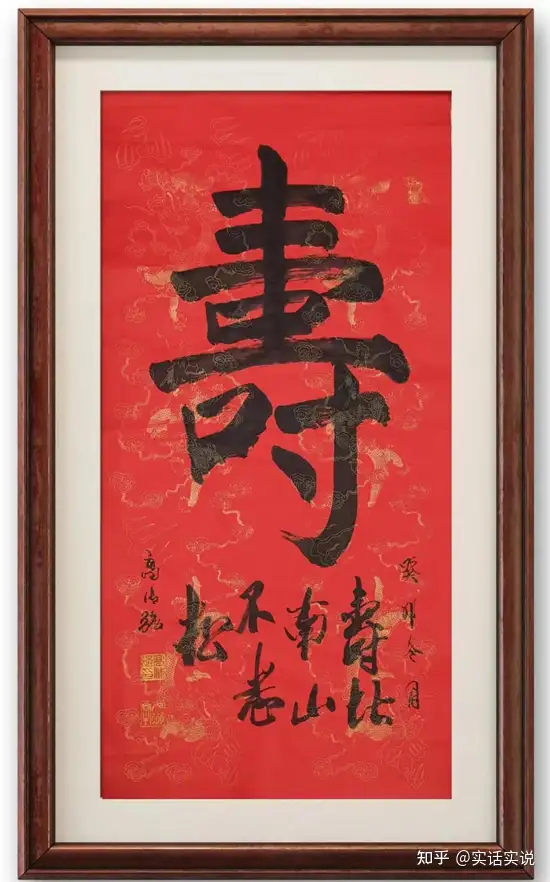 壽
癸卯冬月
壽比
南山
不老
松
知乎 @实话实说